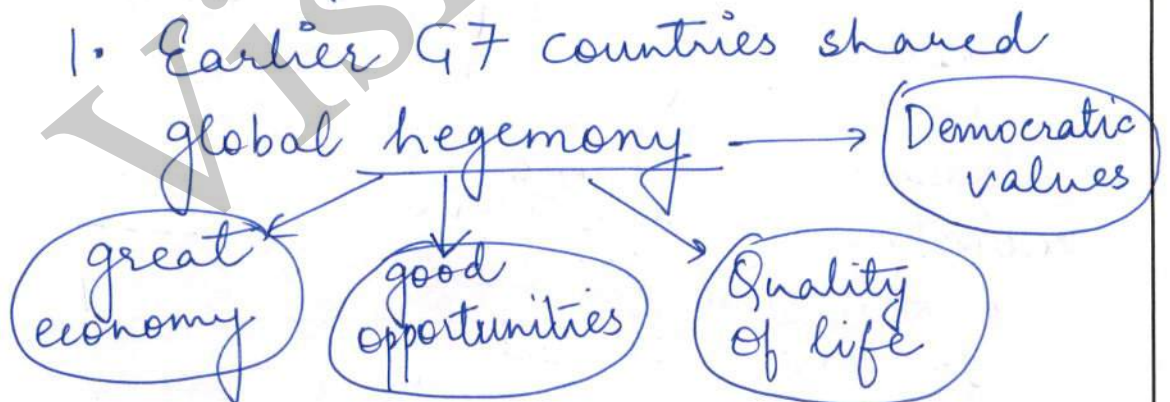 1. Earlier G7 countries shared
global hegemony → Democratic
values
great
economy
good
opportunities
Quality
of life